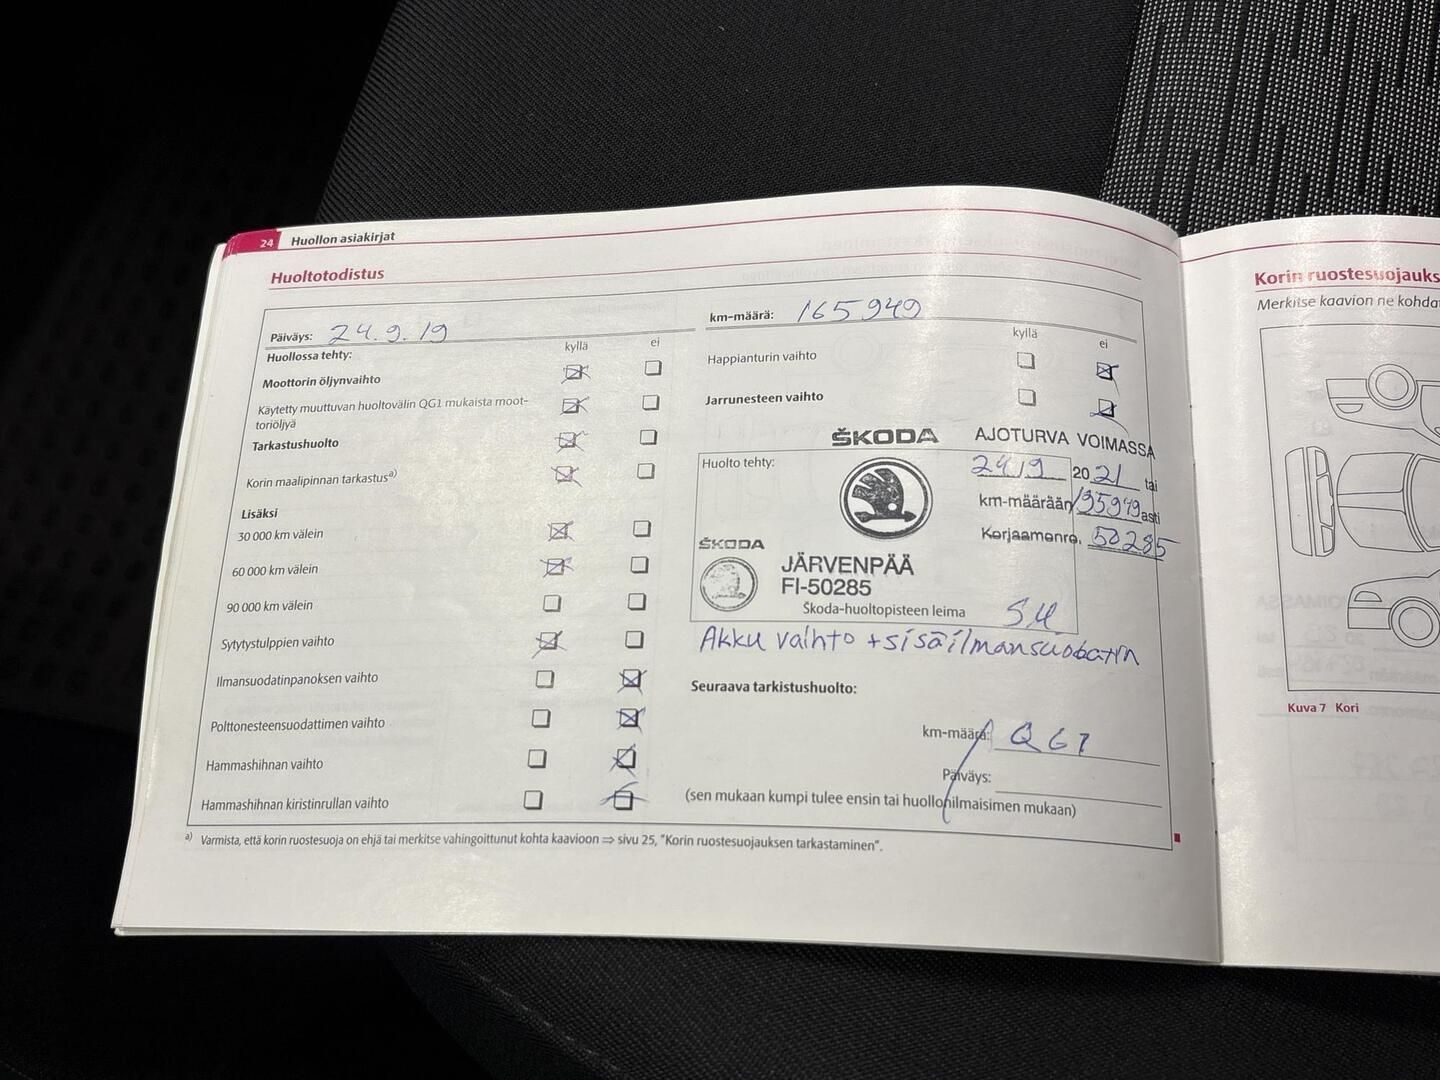 24 Huollon asiakirjat
Huoltotodistus
Päiväys: 24.9.19
Huollossa tehty:
kyllä ei
Moottorin öljynvaihto
Käytetty muuttuvan huoltovälin QG1 mukaista moot-
toriöljyä
Tarkastushuolto
Korin maalipinnan tarkastus a)
Lisäksi
30 000 km välein
60 000 km välein
90 000 km välein
Sytytystulppien vaihto
Ilmansuodatinpanoksen vaihto
Polttonesteensuodattimen vaihto
Hammashihnan vaihto
Hammashihnan kiristinrullan vaihto
km-määrä: 165949
kyllä ei
Happianturin vaihto
Jarrunesteen vaihto
ŠKODA AJOTURVA VOIMASSA
Huolto tehty:
24/9 2021 tai
km-määrään 195949 asti
Korjaamonro. 50285
ŠKODA
JÄRVENPÄÄ
FI-50285
Škoda-huoltopisteen leima
Akku vaihto + sisäilmansuodatin
Seuraava tarkistushuolto:
km-määrä: QG1
Päiväys:
(sen mukaan kumpi tulee ensin tai huollonilmaisimen mukaan)
a) Varmista, että korin ruostesuoja on ehjä tai merkitse vahingoittunut kohta kaavioon ⇒ sivu 25, "Korin ruostesuojauksen tarkastaminen".
Korin ruostesuojauks
Merkitse kaavion ne kohda
Kuva 7 Kori